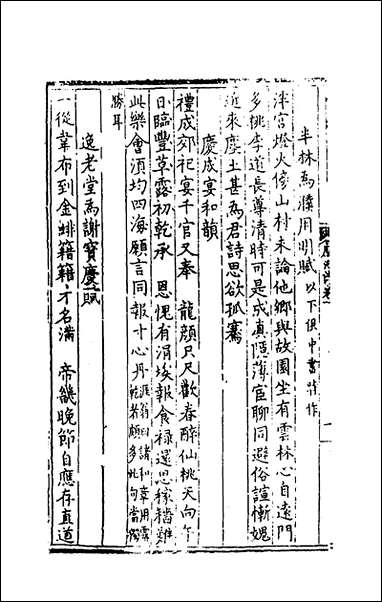 半林為濮用明賦以下俱中書時作
泮宮燈火傍山村未論他鄉與故園坐有雲林心自遠門
多桃李道長尊清時可是成真隱薄宦聊同避俗諠慚媿
近來塵土甚為君詩思欲孤騫
慶成宴和韻
禮成郊祀宴千官又奉 龍顏只尺歡春醉仙桃天向午
日臨豐草露初乾承 恩愧有涓埃報食祿還思稼穡難
此樂會須均四海願言同報寸心丹涯翁曰諸和章用露乾者頗多此句當獨
勝耳
逸老堂為謝寶慶賦
一從韋布到金緋籍籍才名滿 帝畿晚節自應存直道